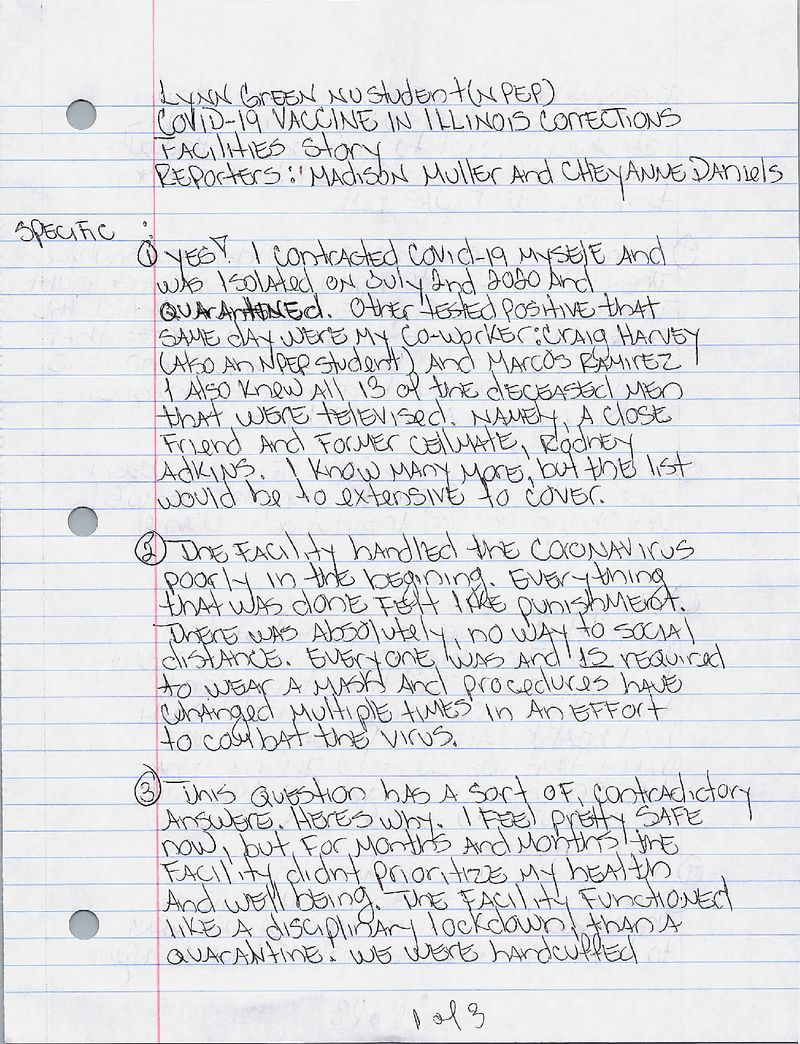 LYNN GREEN NU Student (NPEP)
COVID-19 VACCINE IN ILLINOIS CORRECTIONS
FACILITIES Story
REPORTERS: MADISON MULLER And CHEYANNE DANIELS
SPECIFIC :
① YES! I CONTRACTED COVID-19 MYSELF AND
WAS ISOLATED ON July 2nd 2020 And
QUARANTINED. Other tested positive that
SAME DAY WERE MY CO-WORKER: CRAIG HARVEY
(Also An NPEP Student) AND MARCOS RAMIREZ
I Also Knew All 13 of the DECEASED MEN
that WERE televised. NAMELY, A Close
Friend AND FORMER CEllMATE, Rodney
ADKINS. I KNOW MANY MORE, but the list
would be to extensive to COVER.
② The FACility handled the CORONAVIRUS
poorly in the begining. EVERything
that WAS done FElt like punishment.
THERE WAS Absolutely, no way to SOCIAl
distance. EVERYONE WAS And IS required
to WEAR A MASK And procedures have
CHANGED MULTIPLE TIMES in An EFFORT
to combat the VIRUS.
③ This Question has A sort of, contradictory
ANSWERE. HERES why. I FEEl pretty SAFE
now, but For Months And Months the
FACility didnt prioritize My health
And well being. The FACility Functioned
like A disciplinary lockdown, than A
QUARANTINE. WE WERE handcuffed
1 of 3